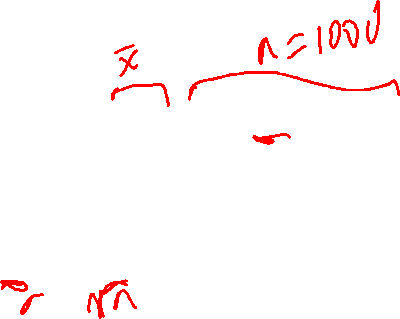 x̄ n=1000
√n